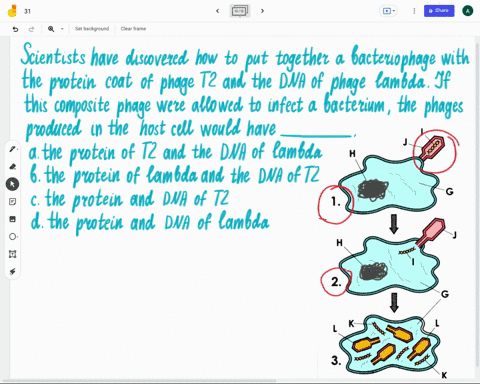 31
10/10
Share
A
Set background
Clear frame
Scientists have discovered how to put together a bacteriophage with
the protein coat of phage T2 and the DNA of phage lambda. If
this composite phage were allowed to infect a bacterium, the phages
produced in the host cell would have __________.
a. the protein of T2 and the DNA of lambda
b. the protein of lambda and the DNA of T2
c. the protein and DNA of T2
d. the protein and DNA of lambda
I
J
H
G
1.
H
J
I
2.
G
K
L
L
3.
K